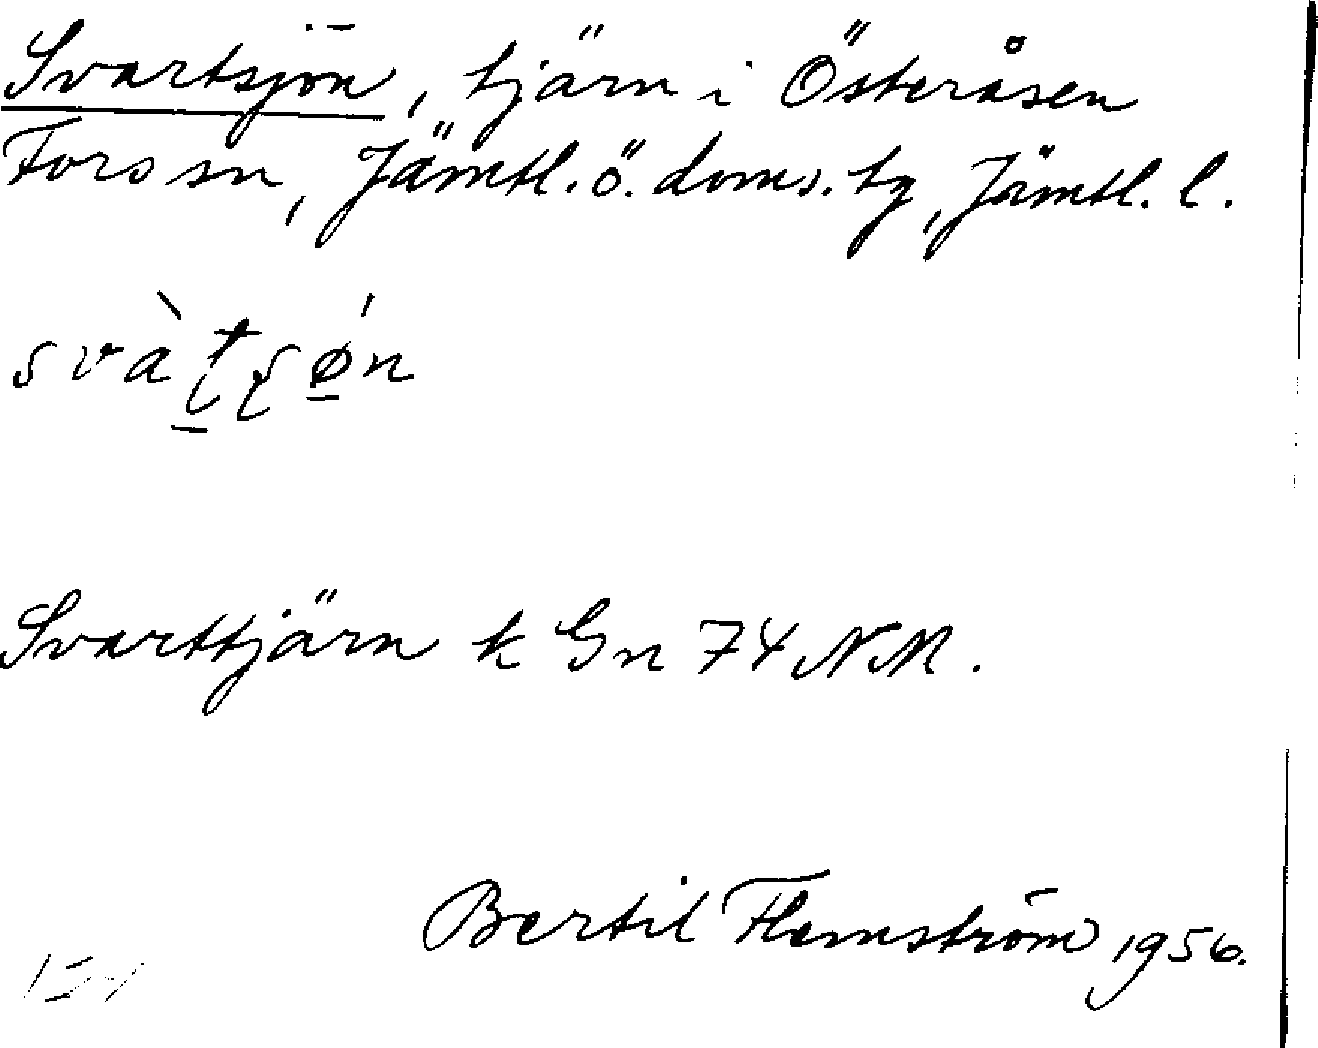 Svartsjön, tjärn i Österåsen
Fors sn, Jämtl. ö. doms. tg, Jämtl. l.
svàt̠ʂǿ̠n
Svarttjärn k Gn 74 NM.
Bertil Flemström 1956.